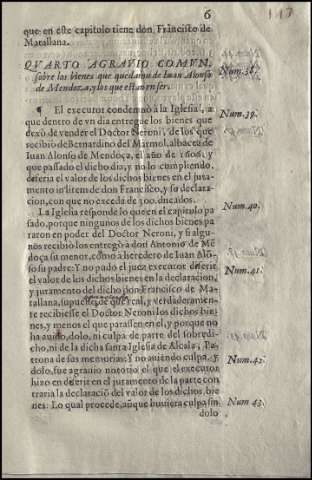 6
117
que en este capitulo tiene don Francisco de
Matallana.
QVARTO AGRAVIO COMVN,
sobre los bienes que quedarō de Iuan Alonso
de Mendoza, y los que estan en ser.
Num. 38.
¶ El executor condenò a la Iglesia, a
Num. 39.
que dentro de vn dia entregue los bienes que
dexò de vender el Doctor Neroni, de los que
recibiò de Bernardino del Marmol, albacea de
Iuan Alonso de Mendoça, el año de 1606. y
que passado el dicho dia, y no lo cumpliendo,
deferia el valor de los dichos bienes en el jura-
mento in litem de don Francisco, y su declara-
cion, con que no exceda de 300. ducados.
La Iglesia responde lo que en el capitulo pa-
Num. 40.
sado, porque ningunos de los dichos bienes pa-
raron en poder del Doctor Neroni, y si algu-
nos recibio los entregò a don Antonio de Mē
doça su menor, como à heredero de Iuan Alō-
so su padre: Y no pudo el juez executor deferir
Num. 41.
el valor de los dichos bienes en la declaracion,
y juramento del dicho don Francisco de Ma-
tallana, supuesto que real, y verdaderamen-
te recibiesse el Doctor Neroni los dichos bie-
nes, y menos el que parassen en el, y porque no
ha auido, dolo, ni culpa de parte del sobredi-
cho, ni de la dicha santa Iglesia de Alcala, Pa-
trona de sus memorias: Y no auiendo culpa, y
Num. 42.
dolo, fue agrauio notorio el que el executor
hizo en deferir en el juramento de la parte con
traria la declaraciō del valor de los dichos, bie
nes: Lo qual procede, aūque huuiera culpa, sin
Num 43.
dolo